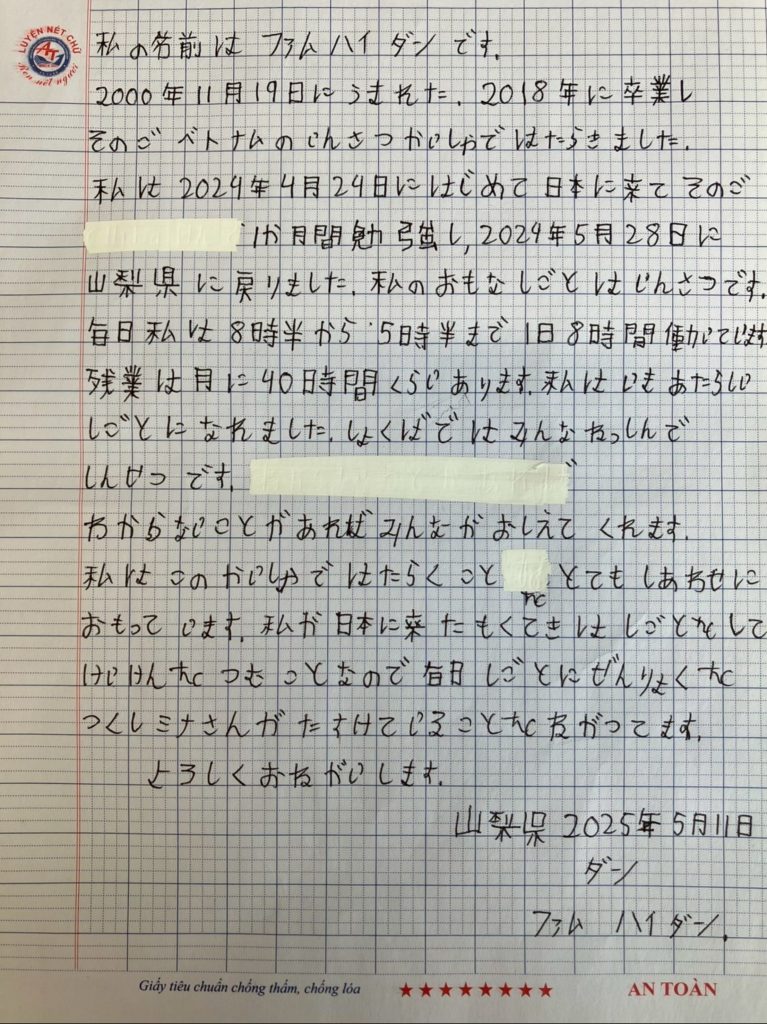 LUYỆN NÉT CHỮ
AT
Rèn nết người
私の名前は ファム ハイ ダン です.
2000年11月19日にうまれた. 2018年に卒業し
そのご ベトナムの けんさつ かいしゃで はたらきました.
私は 2024年4月24日にはじめて 日本に来て そのご
1か月間勉強し, 2024年5月28日に
山梨県に戻りました. 私のおもなしごとは けんさつです.
毎日私は 8時半から 5時半まで 1日8時間働いています
残業は月に40日時間くらいあります. 私は いま あたらしい
しごとになれました. しょくばでは みんな ねっしんで
しんせつです.
わからないことがあれば みんなが おしえて くれます.
私は このかいしゃで はたらくこと を とても しあわせに
おもって います. 私が日本に来たもくてきは しごとをして
けいけんを つむ ことなので 毎日 しごとにぜんりょくを
つくしミナさんがたすけていることをねがってます.
よろしくおねがいします.
山梨県 2025年5月11日
ダン
ファム ハイ ダン.
Giấy tiêu chuẩn chống thấm, chống lóa
AN TOÀN